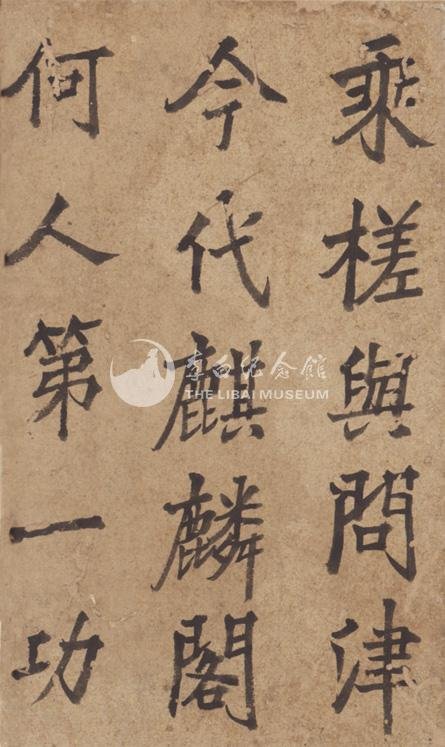 乘槎與問津
今代麒麟閣
何人第一功
李白纪念館
THE LIBAI MUSEUM